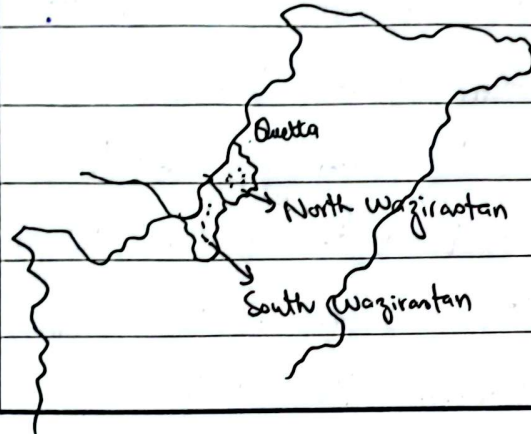 Quetta
North Wazirastan
South Wazirastan